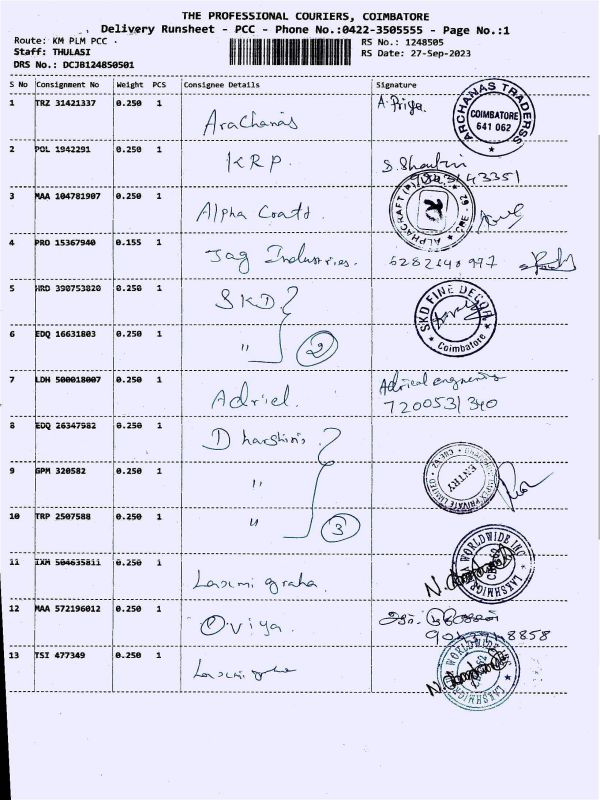 THE PROFESSIONAL COURIERS, COIMBATORE
Delivery Runsheet - PCC - Phone No.:0422-3505555 - Page No.:1
Route: KM PLM PCC
RS No.: 1248505
Staff: THULASI
RS Date: 27-Sep-2023
DRS No.: DCJB124850501
S No Consignment No Weight PCS Consignee Details Signature
1 TRZ 31421337 0.250 1 Arachanas A. Priya.
ARCHANAS TRADERSS
COIMBATORE
641 062
2 POL 1942291 0.250 1 KRP.
3 MAA 104781907 0.250 1 Alpha
4 PRO 15367940 0.155 1 Jag Industries.
5 HRD 390753820 0.250 1 SKD
SKD FINE DECOR
Coimbatore
6 EDQ 16631803 0.250 1 " 2
7 LDH 500018007 0.250 1 Adriel.
7200531340
8 EDQ 26347982 0.250 1 Dharshinis
9 GPM 320582 0.250 1 "
ENTRY
10 TRP 2507588 0.250 1 " 3
11 IXM 504635811 0.250 1 Laxmi graha.
WORLDWIDE INC
12 MAA 572196012 0.250 1 Oviya.
13 TSI 477349 0.250 1 Laxmi
WORLDWIDE